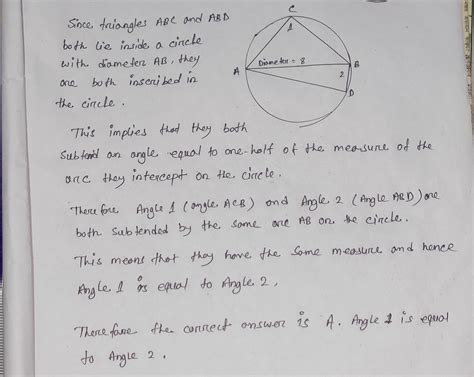 Since triangles ABC and ABD
both lie inside a circle
with diameter AB, they
are both inscribed in
the circle.
C
1
A
Diameter = 8
B
2
D
This implies that they both
subtend an angle equal to one-half of the measure of the
arc they intercept on the circle.
Therefore Angle 1 (angle ACB) and Angle 2 (Angle ABD) are
both subtended by the same arc AB on the circle.
This means that they have the same measure and hence
Angle 1 is equal to Angle 2.
Therefore the correct answer is A. Angle 1 is equal
to Angle 2.